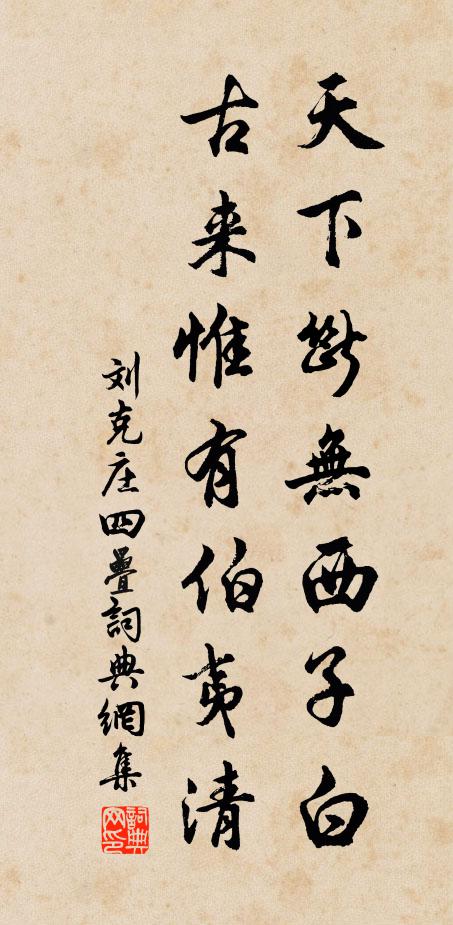 天下斷無西子白
古来惟有伯夷清
刘克庄四疊詞典網集
詞典網印